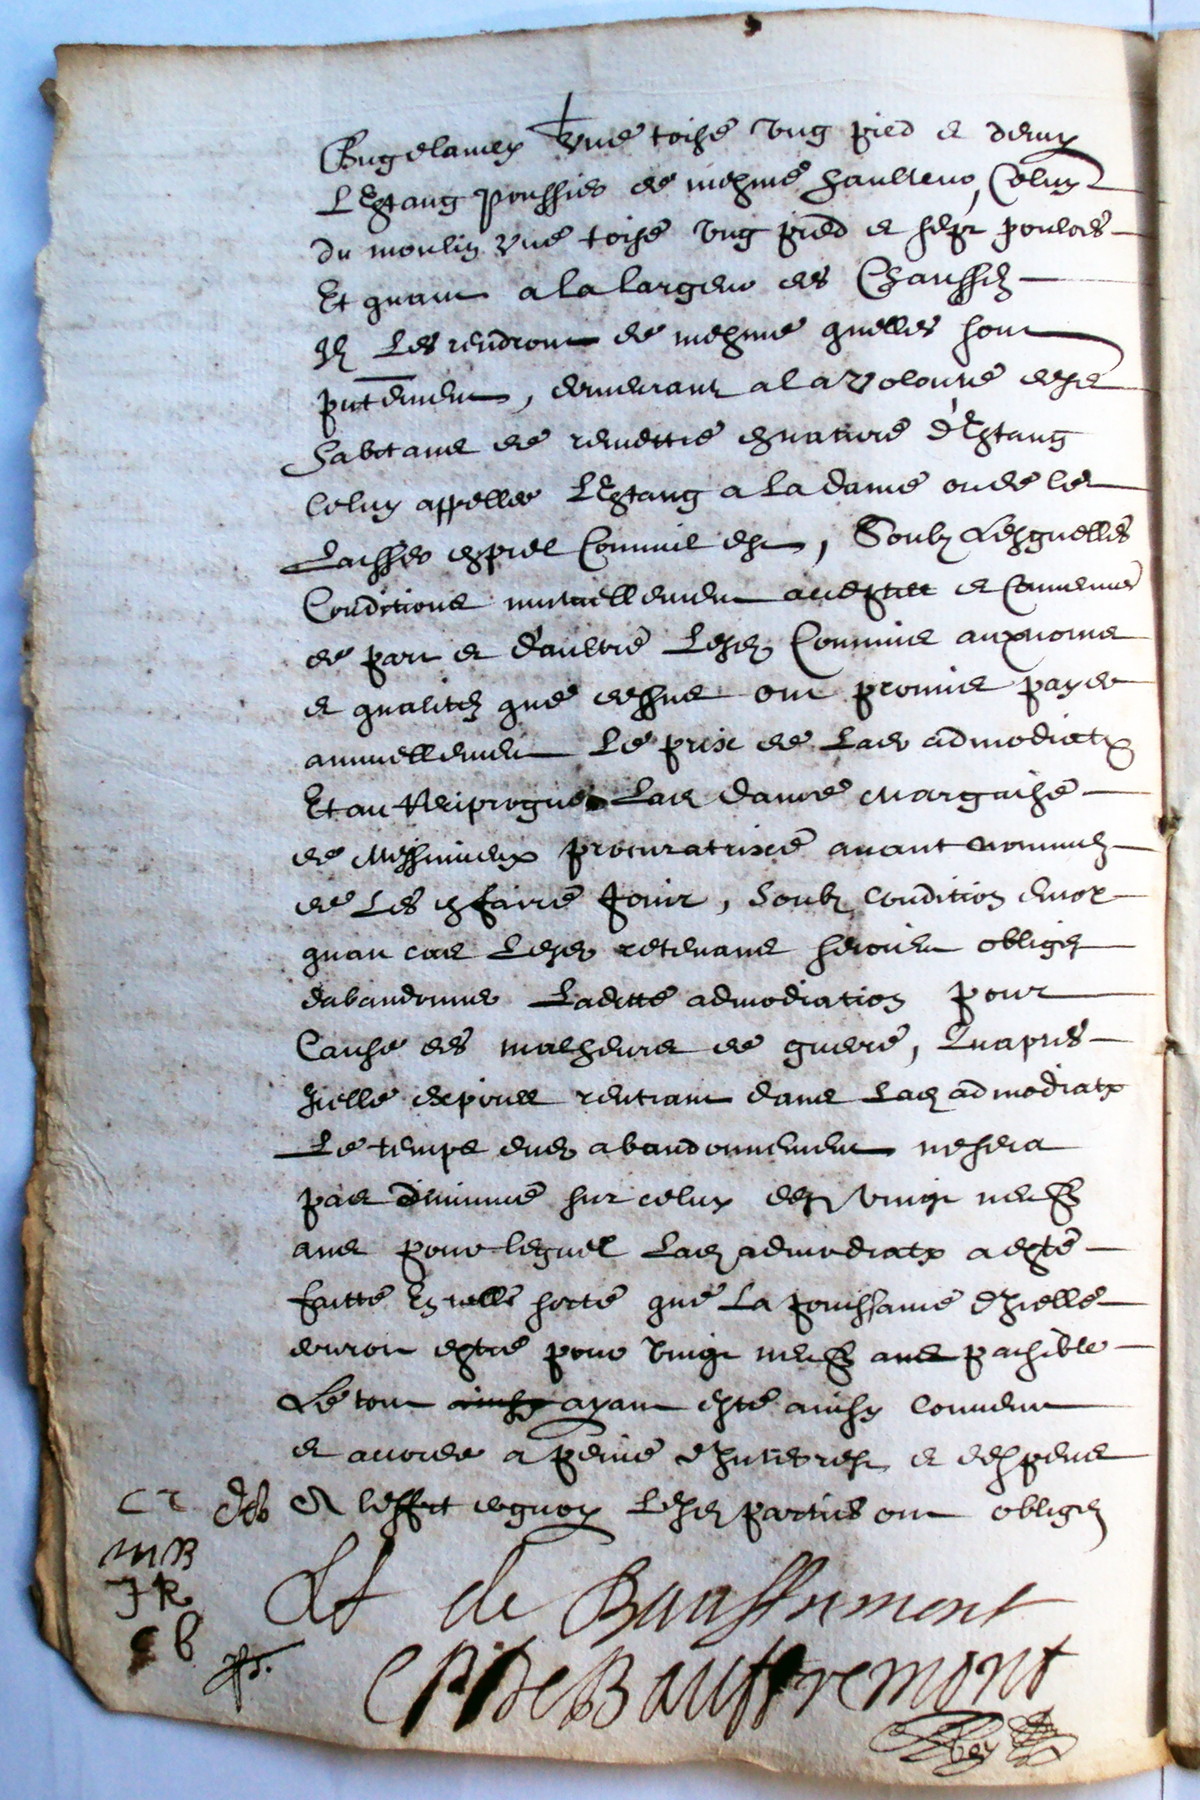 Bugelamey Une toise Ung pied et demy
L'Estang poussies de mesme haulteur, Celuy
du moulin Une toise Ung pied et sept poulces
Et quant a la largeur des Chaussees
Ilz Les rendront de mesme quelles sont
pntement, demeurant a la Volonté desd
habitans de remettre en nature d'Estang
Celuy appellee L'Estang a la dame ou de le
Laisser en prel Comme il est, Soubz Lesquelles
Conditions mutuellement acceptees et Convenues
de part et d'aultre Lesd Commis aux noms
et qualitez que dessus ont promis payer
annuellement Le prix de Lad admodiaon
Et au Reciproque Lad dame Marguise
de Meximieux procuratrice avant nommee
de Les en faire Jouir, Soubz condition encor
quau cas Lesd retenans seroient obligez
dabandonner Laditte admodiation pour
Cause des malheurs de guerre, Quapres
Icelle expiree rentrant dans Lad admodiaon
Le temps dud abandonnement ne sera
pas diminué sur celuy desd vingt neufz
ans pour lequel Lad admodiaon a esté
faitte En telle sorte que La Jouissance d'Icelle
devront estre pour Vingt neufz ans paisible
Le tout ainsy ayant esté ainsy Convenu
et accordé a peine d'Interestz et despens
A l'effect dequoy Lesd parties ont obligez
C R
M B
J R
C B
de Bauffremont
C P De Bauffremont